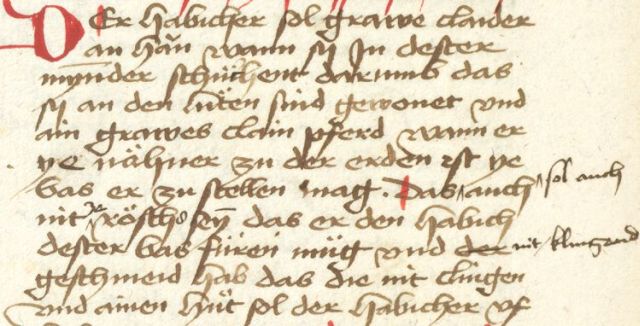 Der habicher sol grawe claider
an han wann sÿ In dester
mÿnder schüchent darumb das
sÿ an den lüten sind gewonet vnd
ain grawes clain pferd wann er
ye nähner zu der erden ist ye
bas er zu stellen mag. Das auch sol auch
nit ze röschs seÿ das er den habich
dester bas füren müg vnd der nit klingend
geschmeid hab das die nit clingen
vnd ainen hüt sol der habicher vf